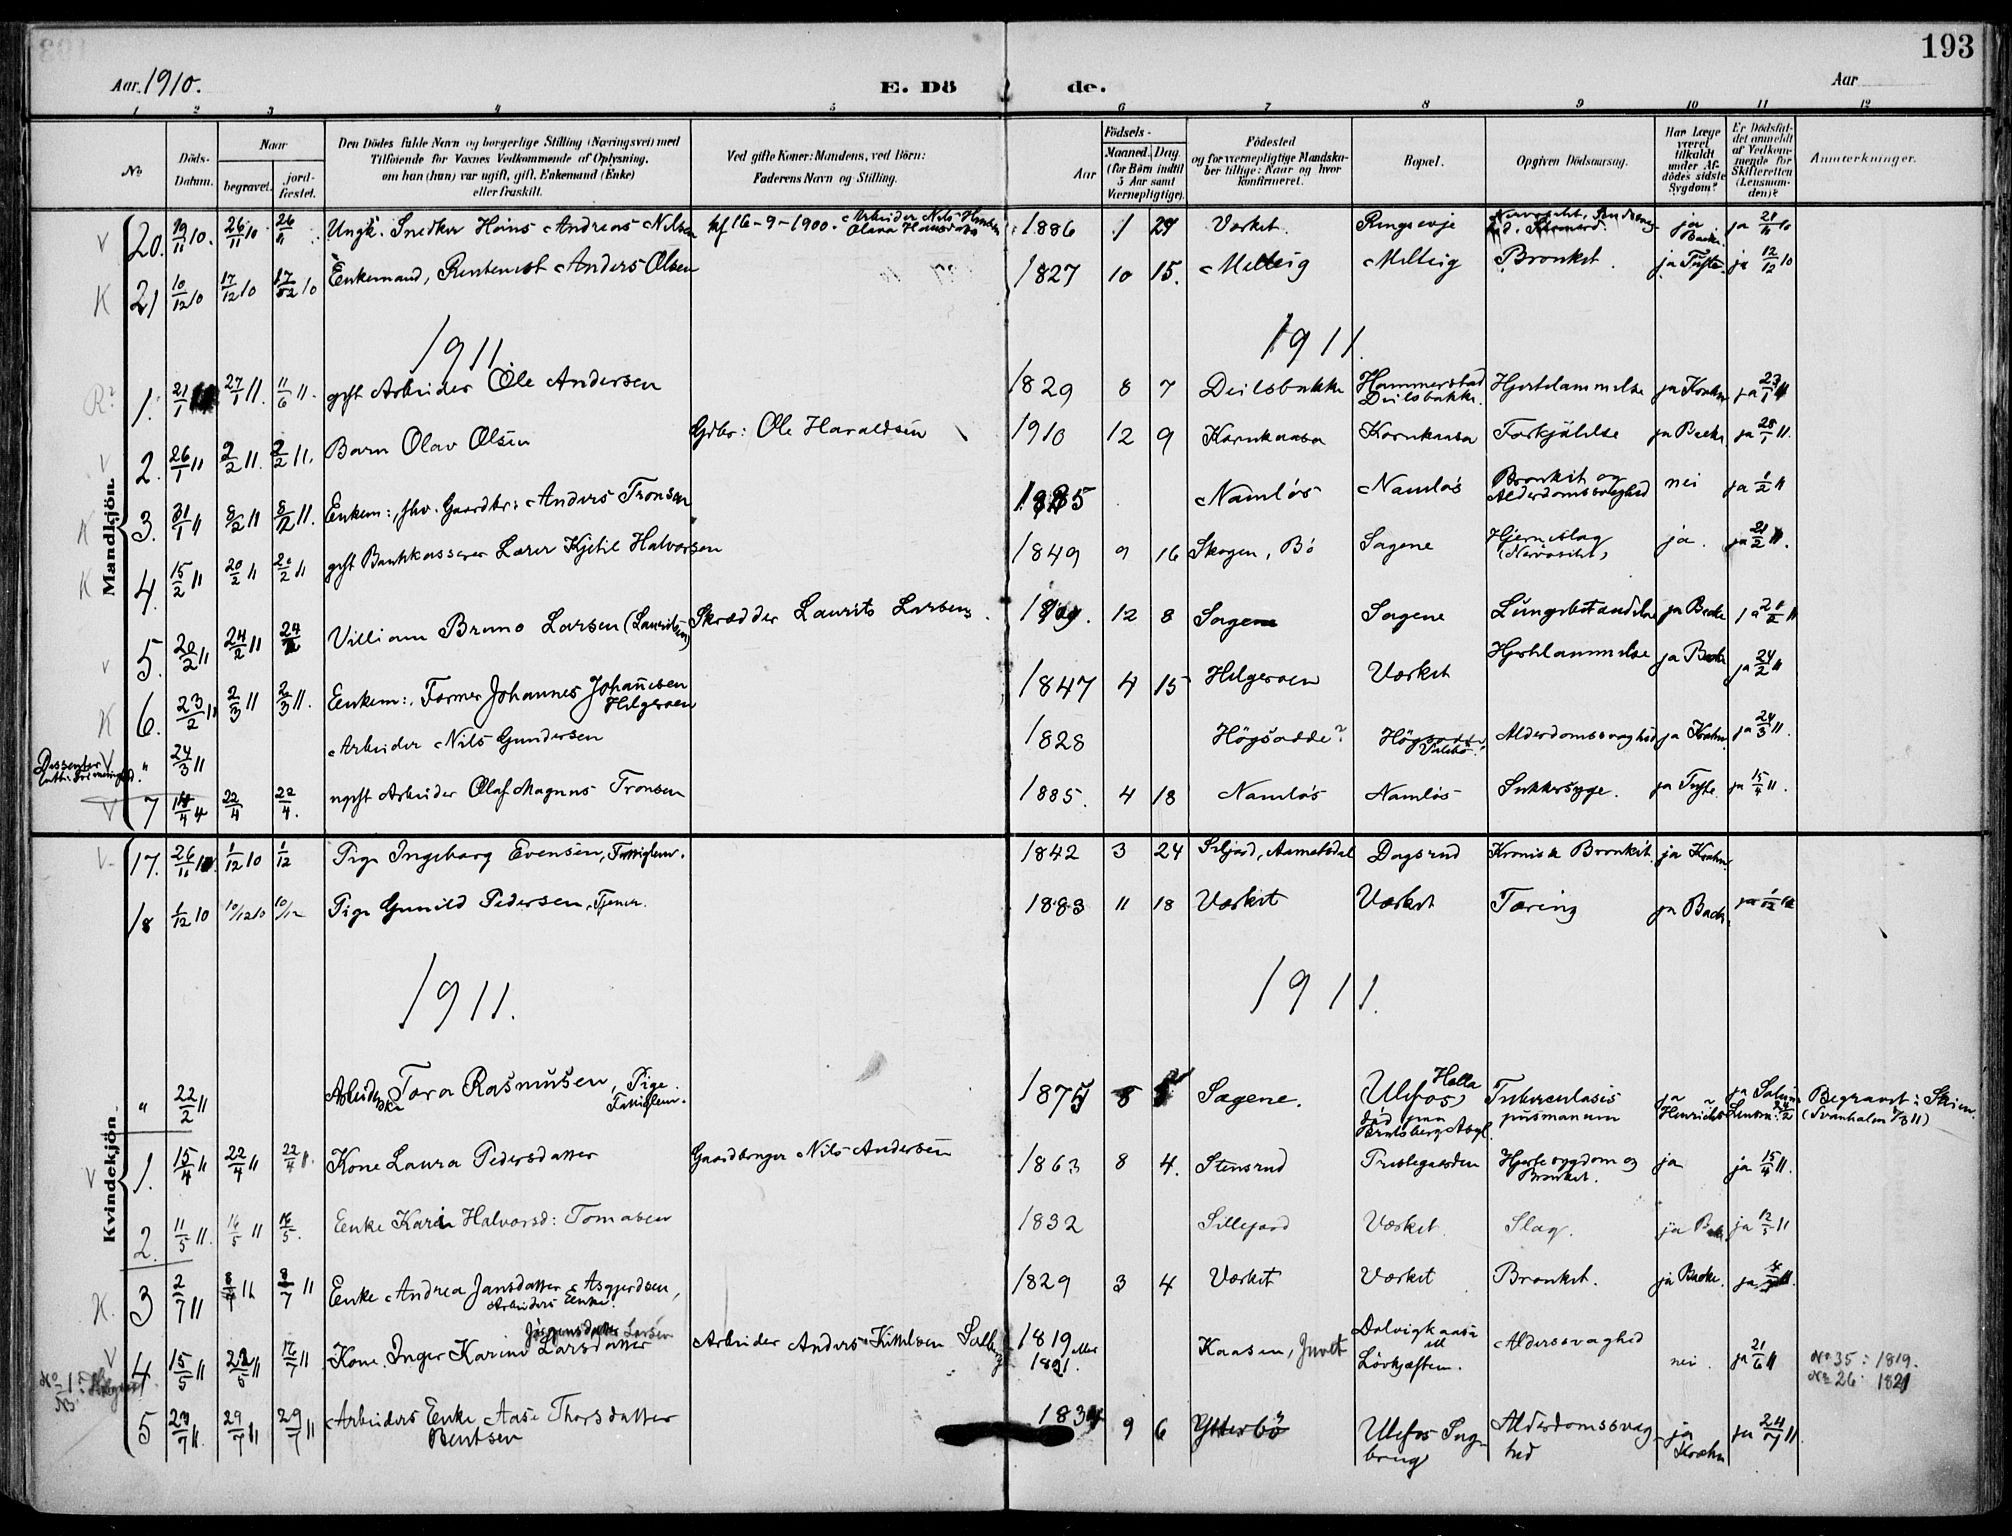 193
Aar 1910.
E. Dö de.
Aar
1 2 3 4 5 6 7 8 9 10 11 12
No.
Döds-Datum.
Naar
begravet.
jord-fæstet.
Den Dödes fulde Navn og borgerlige Stilling (Næringsvei) med Tilföiende for Voxnes Vedkommende af Oplysning, om han (hun) var ugift, gift, Enkemand (Enke) eller fraskilt.
Ved gifte Koner: Mandens, ved Börn: Faderens Navn og Stilling.
Födsels-
Aar
Maaned. Dag.
(for Börn indtil 5 Aar samt Værnepligtige).
Födested og for værnepligtige Mandskaber tillige: Naar og hvor konfirmeret.
Bopæl.
Opgiven Dödsaarsag.
Har Læge været tilkaldt under Afdödes sidste Sygdom?
Er Dödsfaldet anmeldt af Vedkommende for Skifteretten (Lensmanden)?
Anmerkninger.
Mandkjön.
V 20. 19/11 10. 26/11 10 26/11 Ungk. Snedker Hans Andreas Nilsen kf 16-9-1900. Arbeider Nils Hansen Olava Hansdatter 1886 1 29 Værket Ringsevje ja Backe ja 21/11 10
K 21 10/12 10 17/12 10 17/12 10 Enkemand, Rentenist Anders Olsen 1827 10 15. Melteig Melteig Bronkit. ja Tufte. ja 12/12 10
1911 1911.
R? 1. 21/1 27/1 11. 11/6 11. gift Arbeider Ole Andersen 1829 8 7 Deilsbakke Hammerstad Deilsbakke. Hjertelammelse ja Kræhn ja 23/1 11
V 2. 26/1 11 2/2 11. 2/2 11. Barn Olav Olsen Gdbr: Ole Haraldsen 1910 12 9 Kornkaasa Kornkaasa Forkjølelse ja Backe ja 28/1 11.
K 3. 31/1 11 8/2 11 8/2 11. Enkem:, fhv. Gaardbr: Anders Tronsen Namløs Namløs Bronkit og Alderdomssvaghed nei ja 1/2 11
K 4. 15/2 11 20/2 11 20/2 11 gift Bankkasserer Lærer Kjetil Halvorsen 1849 9 16 Skogen, Bø Sagene Hjerneslag ja. ja 21/2 11.
V 5. 20/2 11 24/2 11 24/2 Villiam Bruno Larsen (Lauritsen) Skrædder Laurits Larsen. 12 8 Sagene Sagene Lungebetændelse ja Backe ja 21/2 11
K 6. 23/2 11 2/3 11 2/3 11. Eenkem:. Former Johannes Johannesen Helgeroen 1847 4 15 Helgeroen Værket Hjertelammelse ja Backe ja 24/2 11
Dissenter V " 24/3 11 Arbeider Nils Gundersen 1828 Högsadde? Alderdomssvaghed ja Kræhn ja 24/3 11.
V 7 14/4 22/4 22/4. ugift Arbeider Olaf Magnus Tronsen 1885. 4 18 Namløs Namløs Sukkersyge. ja Tufte. ja 15/4 11.
Kvindekjön
V 17. 26/11 1/12 10 1/12 Pige Ingeborg Evensen, Fattiglem. 1842 3 24 Siljord, Aamotsdal Dagsrud Kronisk Bronkit. ja Kræhn
18 1/12 10 10/12 10 10/12 Pige Gunild Pedersen, Tjener. 1883 11 18 Værket Værket Tæring ja Backe
1911. 1911.
" 22/2 11 Arbeiderske Tora Rasmusen, Pige. Fattiglem. 1875 8 Sagene. Ulefos, Holla død paa Bratsberg Asyl. Tuberculosis pulmonum ja Henrichs Begravet i Skien. (Svanhalen 1/3 11)
V 1. 15/4 11 22/4 11 22/4 11. Kone Laura Pedersdatter Gaardbruger Nils Andersen 1863 8 4. Stensrud Prestegaarden Hjertesygdom og Bronkit. ja ja 15/4 11.
2. 11/5 11. 16/5 11 16/5. Eenke Karen Halvorsd: Tomasen 1832 Sillejord Værket. Slag. ja Backe ja 12/5 11
K. 3 2/7 11 8/7 11 8/7 11 Enke Andrea Jansdatter Asgjerdsen, Arbeiders Enke. 1829 3 4 Værket Værket Bronkit. ja Backe. ja
V 4 15/5 11 22/5 11 16/7 11 Kone Inger Karine Larsdatter Jørgensdatter Larsen Arbeider Anders Kittelsen 1819 eller 1821. Kaasen, Juvet Dalvigkaasa Løvkjæften. Aldersvaghed nei. ja 21/6 11 No 35: 1819. No 26: 1821
5 23/7 11. 29/7 11 29/7 11 Arbeiders Enke Aase Thorsdatter Bentsen 1834 9 6 Ytterbö Ulefos Sagbrug Alderdomssvaghed ja Kræhn ja 24/7 11.